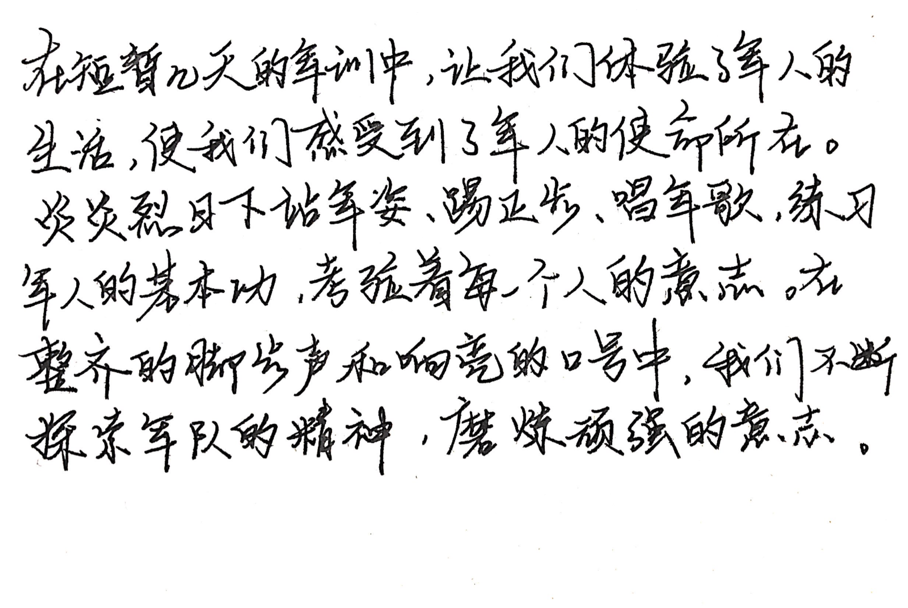 在短暂几天的军训中，让我们体验了军人的
生活，使我们感受到了军人的使命所在。
炎炎烈日下站军姿、踢正步、唱军歌，练习
军人的基本功，考验着每一个人的意志。在
整齐的脚步声和响亮的口号中，我们不断
探索军队的精神，磨炼顽强的意志。